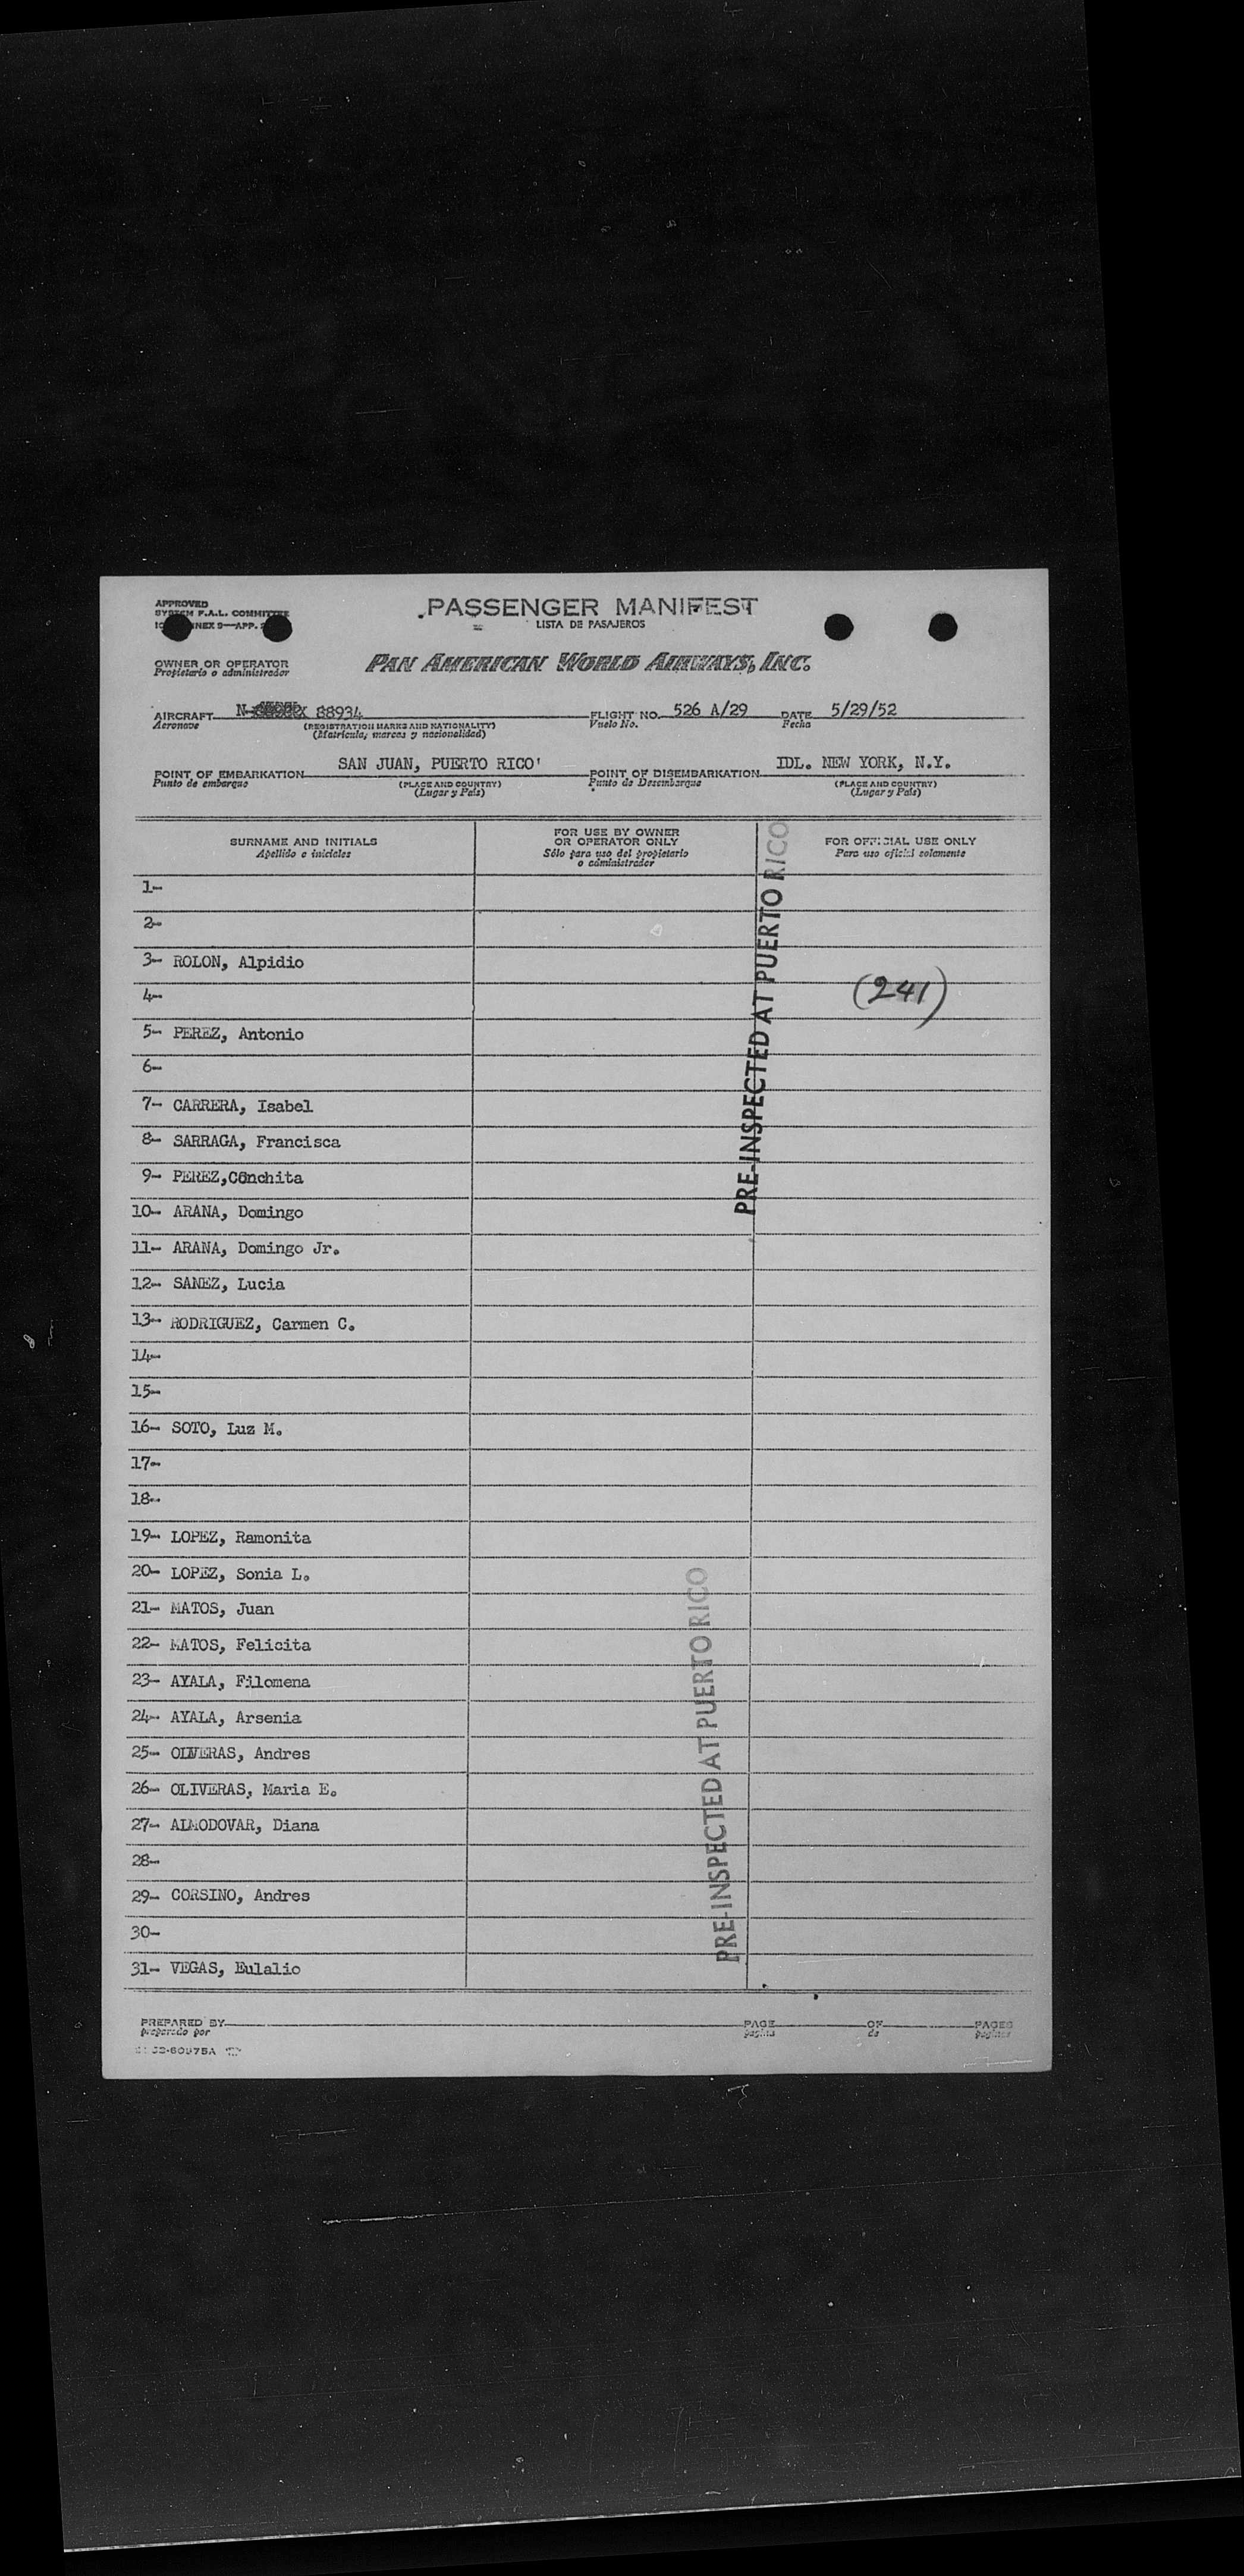 APPROVED
SYSTEM F.A.L. COMMITTEE
NEX 9—APP.
PASSENGER MANIFEST
LISTA DE PASAJEROS
OWNER OR OPERATOR
Propietario o administrador
PAN AMERICAN WORLD AIRWAYS, INC.
AIRCRAFT N- 88934 FLIGHT NO. 526 A/29 DATE 5/29/52
Aeronave (REGISTRATION MARKS AND NATIONALITY) Vuelo No. Fecha
(Matrícula, marcas y nacionalidad)
POINT OF EMBARKATION SAN JUAN, PUERTO RICO' POINT OF DISEMBARKATION IDL. NEW YORK, N.Y.
Punto de embarque (PLACE AND COUNTRY) Punto de Desembarque (PLACE AND COUNTRY)
(Lugar y País) (Lugar y País)
SURNAME AND INITIALS FOR USE BY OWNER OR OPERATOR ONLY FOR OFFICIAL USE ONLY
Apellido e iniciales Sólo para uso del propietario o administrador Para uso oficial solamente
PRE-INSPECTED AT PUERTO RICO
1-
2-
3- ROLON, Alpidio
4-
(241)
5- PEREZ, Antonio
6-
7- CARRERA, Isabel
8- SARRAGA, Francisca
9- PEREZ,Conchita
10- ARANA, Domingo
11- ARANA, Domingo Jr.
12- SANEZ, Lucia
13- RODRIGUEZ, Carmen C.
14-
15-
16- SOTO, Luz M.
17-
18-
19- LOPEZ, Ramonita
20- LOPEZ, Sonia L.
21- MATOS, Juan
22- MATOS, Felicita
23- AYALA, Filomena
24- AYALA, Arsenia
25- OLVERAS, Andres
26- OLIVERAS, Maria E.
27- ALMODOVAR, Diana
28-
29- CORSINO, Andres
30-
31- VEGAS, Eulalio
PRE-INSPECTED AT PUERTO RICO
PREPARED BY PAGE OF PAGES
preparado por pagina de paginas